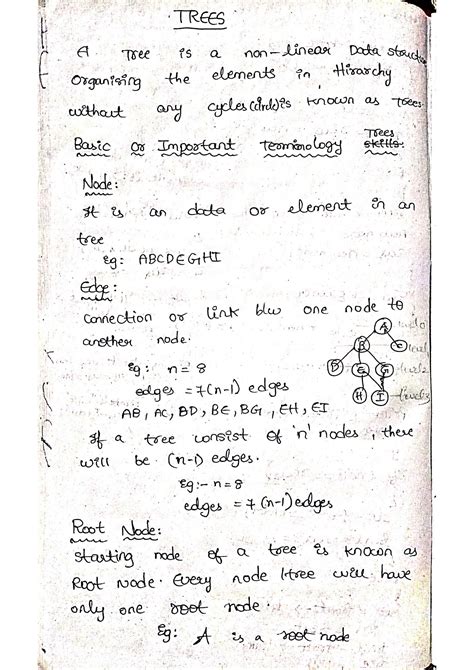 TREES
A Tree is a non-linear Data structure
Organising the elements in Hirarchy
without any cycles(circle) is known as trees.
Basic or Important Terminology Trees
skills:
Node:
It is an data or element in an
tree
Eg: ABCDEGHI
Edge:
connection or link b/w one node to
another node.
A level0
B C level1
D E G level2
H I level3
Eg: n=8
edges = 7(n-1) edges
AB, AC, BD, BE, BG, EH, EI
If a tree consist of 'n' nodes, there
will be (n-1) edges.
Eg:- n=8
edges = 7 (n-1) edges
Root Node:
starting node of a tree is known as
Root Node. Every node tree will have
only one root node.
Eg: A is a root node